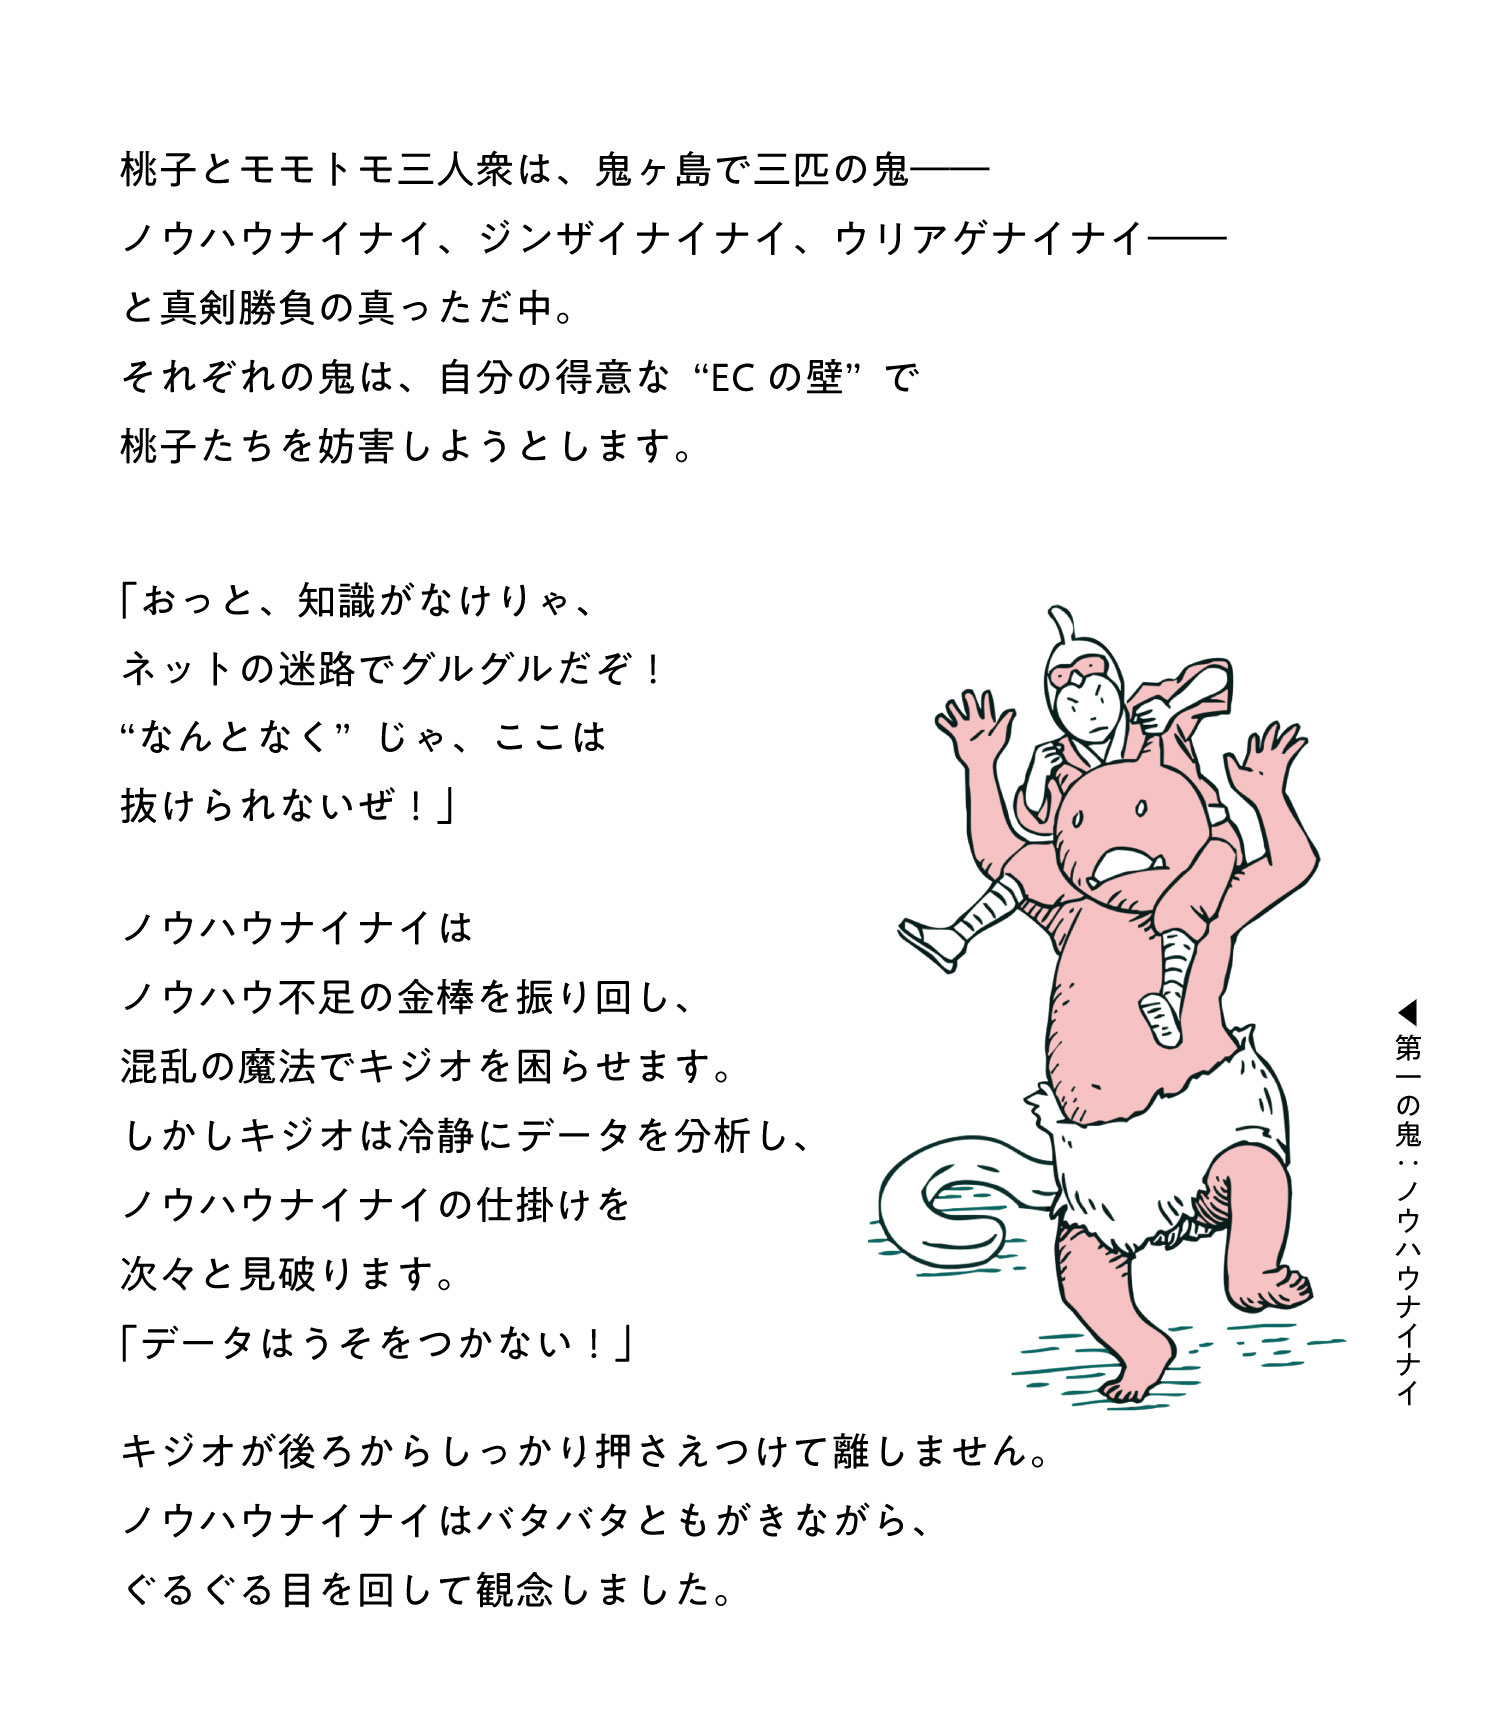 桃子とモモトモ三人衆は、鬼ヶ島で三匹の鬼――
ノウハウナイナイ、ジンザイナイナイ、ウリアゲナイナイ――
と真剣勝負の真っただ中。
それぞれの鬼は、自分の得意な“ECの壁”で
桃子たちを妨害しようとします。
「おっと、知識がなけりゃ、
ネットの迷路でグルグルだぞ！
“なんとなく”じゃ、ここは
抜けられないぜ！」
ノウハウナイナイは
ノウハウ不足の金棒を振り回し、
混乱の魔法でキジオを困らせます。
しかしキジオは冷静にデータを分析し、
ノウハウナイナイの仕掛けを
次々と見破ります。
「データはうそをつかない！」
キジオが後ろからしっかり押さえつけて離しません。
ノウハウナイナイはバタバタともがきながら、
ぐるぐる目を回して観念しました。
◀第一の鬼：ノウハウナイナイ